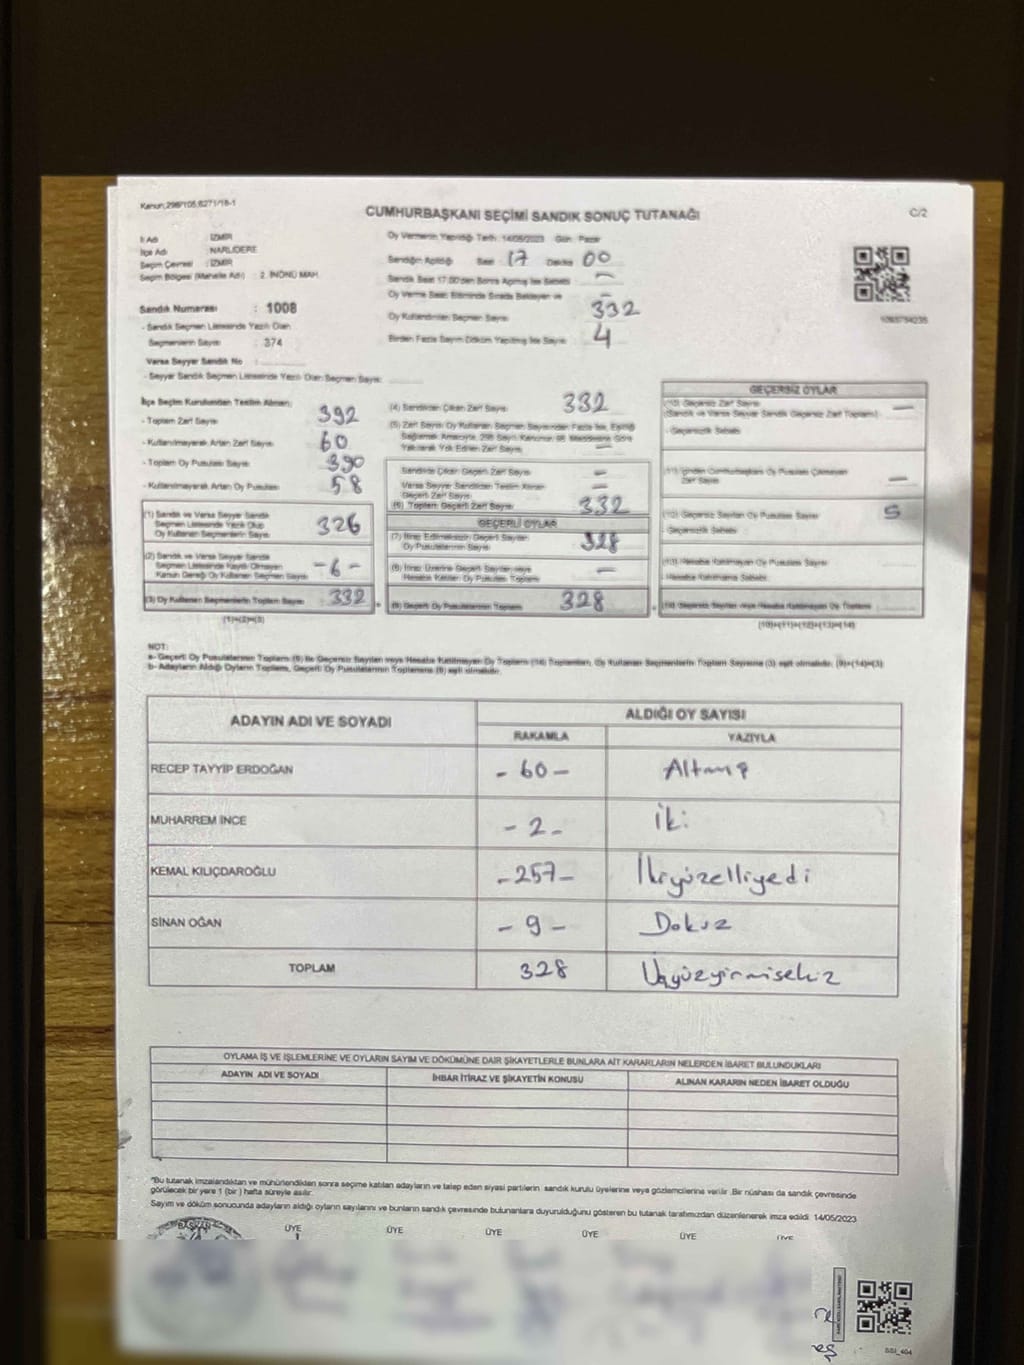 Kanun;298/105;6271/18-1
CUMHURBAŞKANI SEÇİMİ SANDIK SONUÇ TUTANAĞI
C/2
İl Adı : İZMİR
İlçe Adı : NARLIDERE
Seçim Çevresi : İZMİR
Seçim Bölgesi (Mahalle Adı) : 2. İNÖNÜ MAH.
Oy Vermenin Yapıldığı Tarih: 14/05/2023 Gün: Pazar
Sandığın Açıldığı Saat 17 Dakika 00
Sandık Saat 17.00'den Sonra Açılmış İse Sebebi —
Oy Verme Saati Bitiminde Sırada Bekleyen ve —
Oy Kullandırılan Seçmen Sayısı 332
Birden Fazla Sayım Döküm Yapılmış İse Sayısı 4
Sandık Numarası : 1008
- Sandık Seçmen Listesinde Yazılı Olan
Seçmenlerin Sayısı : 374
Varsa Seyyar Sandık No :
- Seyyar Sandık Seçmen Listesinde Yazılı Olan Seçmen Sayısı
İlçe Seçim Kurulundan Teslim Alınan;
- Toplam Zarf Sayısı 392
- Kullanılmayarak Artan Zarf Sayısı 60
- Toplam Oy Pusulası Sayısı 390
- Kullanılmayarak Artan Oy Pusulası 58
(1) Sandık ve Varsa Seyyar Sandık
Seçmen Listesinde Yazılı Olup
Oy Kullanan Seçmenlerin Sayısı 326
(2) Sandık ve Varsa Seyyar Sandık
Seçmen Listesinde Kayıtlı Olmayan
Kanun Gereği Oy Kullanan Seçmen Sayısı -6-
(3) Oy Kullanan Seçmenlerin Toplam Sayısı 332
(1)+(2)=(3)
(4) Sandıktan Çıkan Zarf Sayısı 332
(5) Zarf Sayısı Oy Kullanan Seçmen Sayısından Fazla İse, Eşitliği
Sağlamak Amacıyla, 298 Sayılı Kanunun 98. Maddesine Göre
Yakılarak Yok Edilen Zarf Sayısı —
Sandıkta Çıkan Geçerli Zarf Sayısı —
Varsa Seyyar Sandıktan Teslim Alınan
Geçerli Zarf Sayısı —
(6) Toplam Geçerli Zarf Sayısı 332
GEÇERLİ OYLAR
(7) İtiraz Edilmeksizin Geçerli Sayılan
Oy Pusulalarının Sayısı 328
(8) İtiraz Üzerine Geçerli Sayılan veya
Hesaba Katılan Oy Pusulası Toplamı —
(9) Geçerli Oy Pusulalarının Toplamı 328
GEÇERSİZ OYLAR
(10) Geçersiz Zarf Sayısı —
(Sandık ve Varsa Seyyar Sandık Geçersiz Zarf Toplamı)
- Geçersizlik Sebebi
(11) İçinden Cumhurbaşkanı Oy Pusulası Çıkmayan
Zarf Sayısı —
(12) Geçersiz Sayılan Oy Pusulası Sayısı 5
- Geçersizlik Sebebi
(13) Hesaba Katılmayan Oy Pusulası Sayısı
- Hesaba Katılmama Sebebi
(14) Geçersiz Sayılan veya Hesaba Katılmayan Oy Toplamı
(10)+(11)+(12)+(13)=(14)
NOT:
a- Geçerli Oy Pusulalarının Toplamı (9) ile Geçersiz Sayılan veya Hesaba Katılmayan Oy Toplamı (14) Toplamları, Oy Kullanan Seçmenlerin Toplam Sayısına (3) eşit olmalıdır. (9)+(14)=(3)
b- Adayların Aldığı Oyların Toplamı, Geçerli Oy Pusulalarının Toplamına (9) eşit olmalıdır.
ADAYIN ADI VE SOYADI
ALDIĞI OY SAYISI
RAKAMLA YAZIYLA
RECEP TAYYİP ERDOĞAN - 60 - Altmış
MUHARREM İNCE - 2 - İki
KEMAL KILIÇDAROĞLU - 257 - İkiyüzelliyedi
SİNAN OĞAN - 9 - Dokuz
TOPLAM 328 Üçyüzyirmisekiz
OYLAMA İŞ VE İŞLEMLERİNE VE OYLARIN SAYIM VE DÖKÜMÜNE DAİR ŞİKAYETLERLE BUNLARA AİT KARARLARIN NELERDEN İBARET BULUNDUKLARI
ADAYIN ADI VE SOYADI İHBAR İTİRAZ VE ŞİKAYETİN KONUSU ALINAN KARARIN NEDEN İBARET OLDUĞU
"Bu tutanak imzalandıktan ve mühürlendikten sonra seçime katılan adayların ve talep eden siyasi partilerin sandık kurulu üyelerine veya gözlemcilerine verilir. Bir nüshası da sandık çevresinde
görülecek bir yere 1 (bir) hafta süreyle asılır.
Sayım ve döküm sonucunda adayların aldığı oyların sayılarını ve bunların sandık çevresinde bulunanlara duyurulduğunu gösteren bu tutanak tarafımızdan düzenlenerek imza edildi. 14/05/2023
BAŞKAN ÜYE ÜYE ÜYE ÜYE ÜYE ÜYE